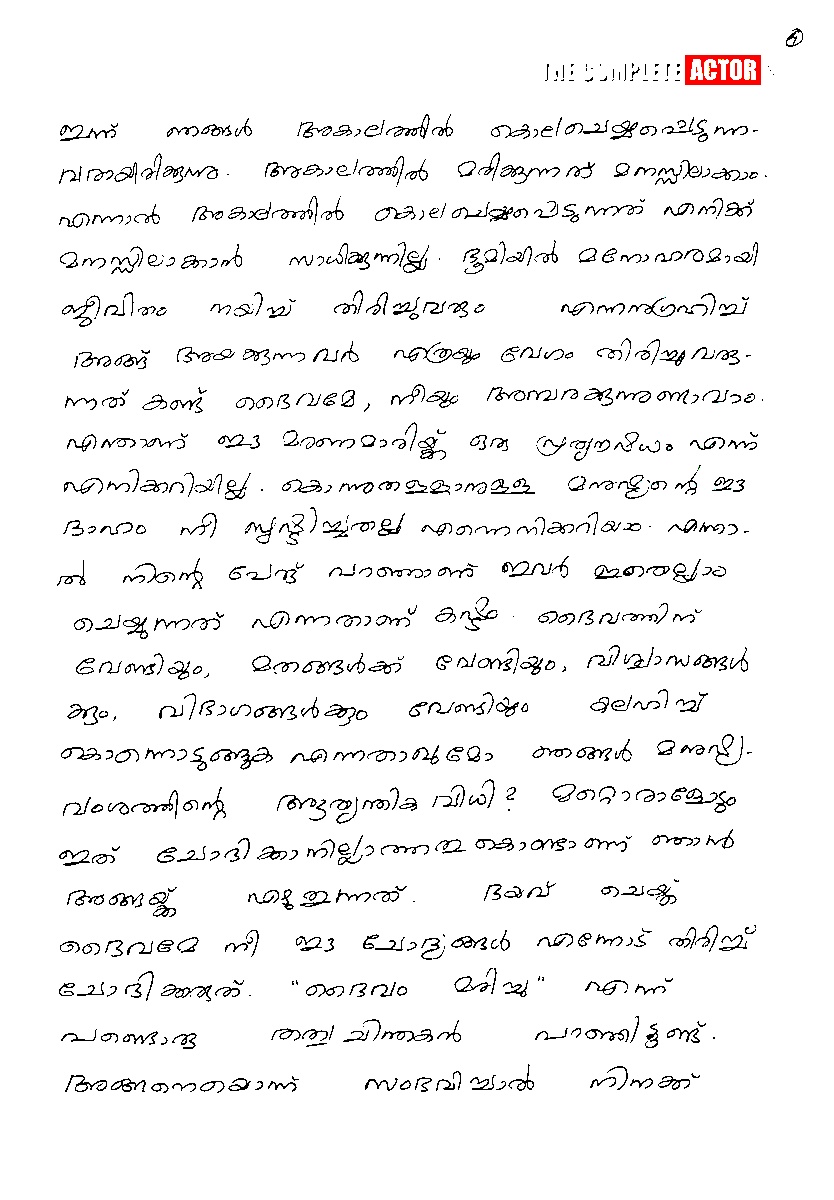 4
THE COMPLETE ACTOR
ഇന്ന് ഞങ്ങൾ അകാലത്തിൽ കൊലചെയ്യപ്പെടുന്ന-
വരായിരിക്കുന്നു. അകാലത്തിൽ മരിക്കുന്നത് മനസ്സിലാക്കാം.
എന്നാൽ അകാലത്തിൽ കൊലചെയ്യപ്പെടുന്നത് എനിക്ക്
മനസ്സിലാകാൻ സാധിക്കുന്നില്ല. ഭൂമിയിൽ മനോഹരമായി
ജീവിതം നയിച്ച് തിരിച്ചുവരും എന്നനുഗ്രഹിച്ച്
അങ്ങ് അയക്കുന്നവർ എത്രയും വേഗം തിരിച്ചു വരു-
ന്നത് കണ്ട് ദൈവമേ, നീയും അമ്പരക്കുന്നുണ്ടാവാം.
എന്താണ് ഈ മരണമാരിയ്ക്ക് ഒരു പ്രത്യൗഷധം എന്ന്
എനിക്കറിയില്ല. കൊന്നുതള്ളാനുള്ള മനുഷ്യന്റെ ഈ
ദാഹം നീ സൃഷ്ടിച്ചതല്ല എന്നെനിക്കറിയാം. എന്നാ-
ൽ നിന്റെ പേര് പറഞ്ഞാണ് ഇവർ ഇതെല്ലാം
ചെയ്യുന്നത് എന്നതാണ് കഷ്ടം. ദൈവത്തിന്
വേണ്ടിയും, മതങ്ങൾക്ക് വേണ്ടിയും, വിശ്വാസങ്ങൾ
ക്കും, വിഭാഗങ്ങൾക്കും വേണ്ടിയും കലഹിച്ച്
കൊന്നൊടുങ്ങുക എന്നതാവുമോ ഞങ്ങൾ മനുഷ്യ-
വംശത്തിന്റെ ആത്യന്തിക വിധി? മറ്റൊരാളോടും
ഇത് ചോദിക്കാനില്ലാത്തതു കൊണ്ടാണ് ഞാൻ
അങ്ങയ്ക്ക് എഴുതുന്നത്. ദയവ് ചെയ്ത്
ദൈവമേ നീ ഈ ചോദ്യങ്ങൾ എന്നോട് തിരിച്ച്
ചോദിക്കരുത്. "ദൈവം മരിച്ചു" എന്ന്
പണ്ടൊരു തത്വചിന്തകൻ പറഞ്ഞിട്ടുണ്ട്.
അങ്ങനെയൊന്ന് സംഭവിച്ചാൽ നിനക്ക്